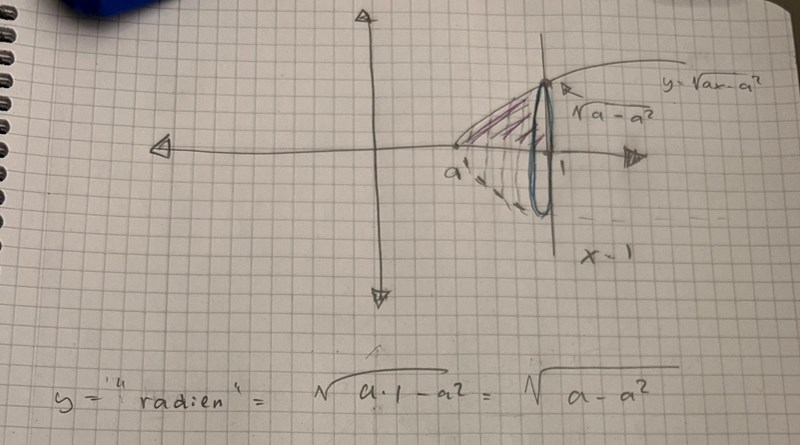 y=√ax-a²
√a-a²
a
1
x-1
y = "radien" = √a·1-a² = √a-a²